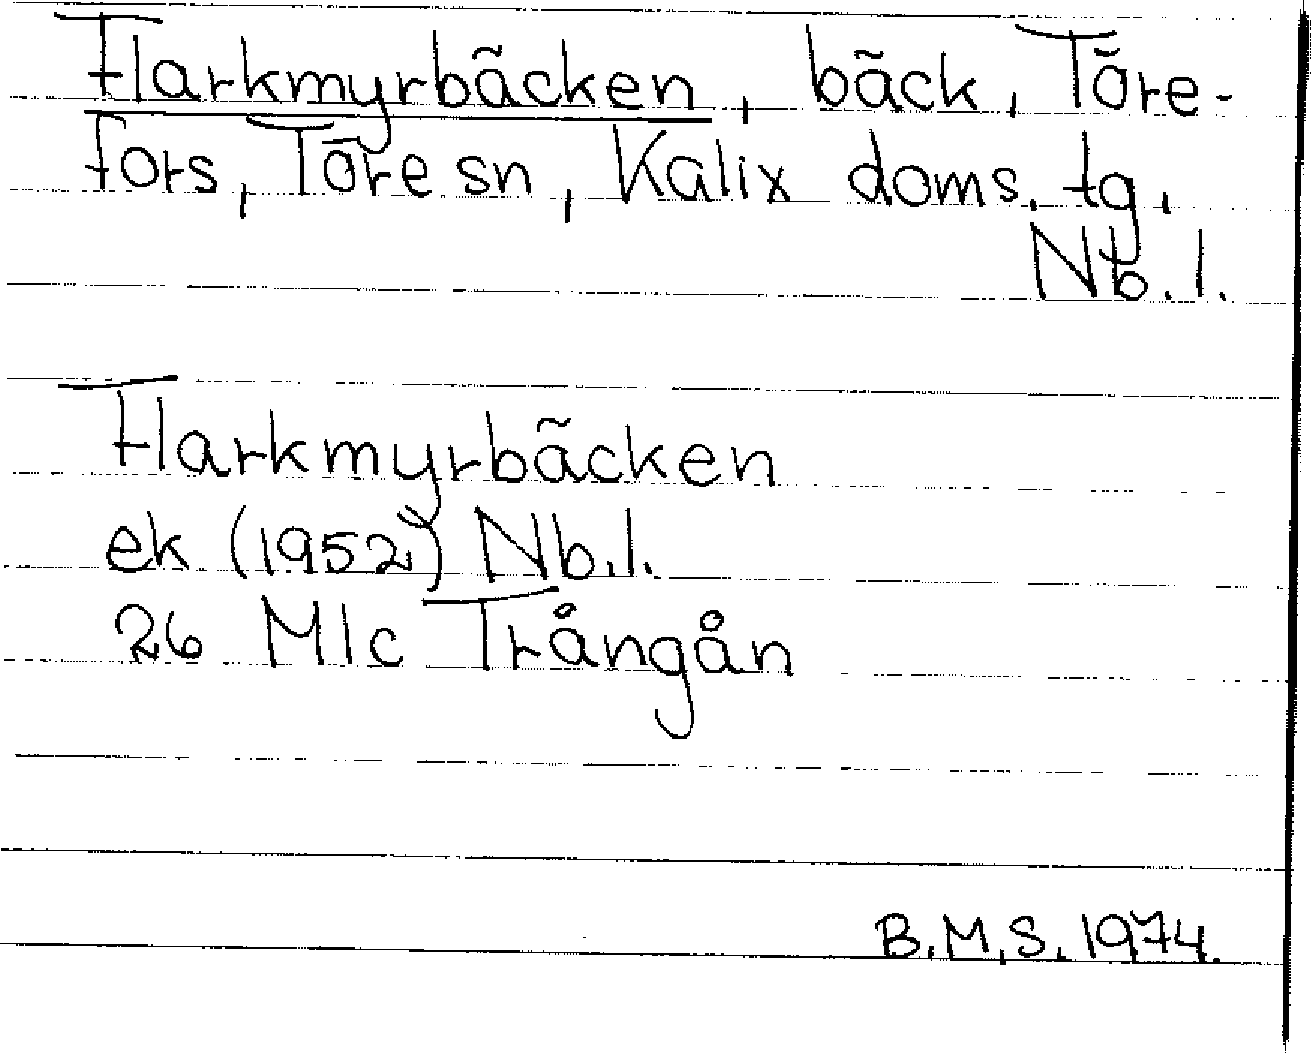 Flarkmyrbäcken, bäck, Töre-
fors, Töre sn, Kalix doms. tg.
Nb. l.
Flarkmyrbäcken
ek (1952) Nb. l.
26 M1c Trångån
B.M.S. 1974.